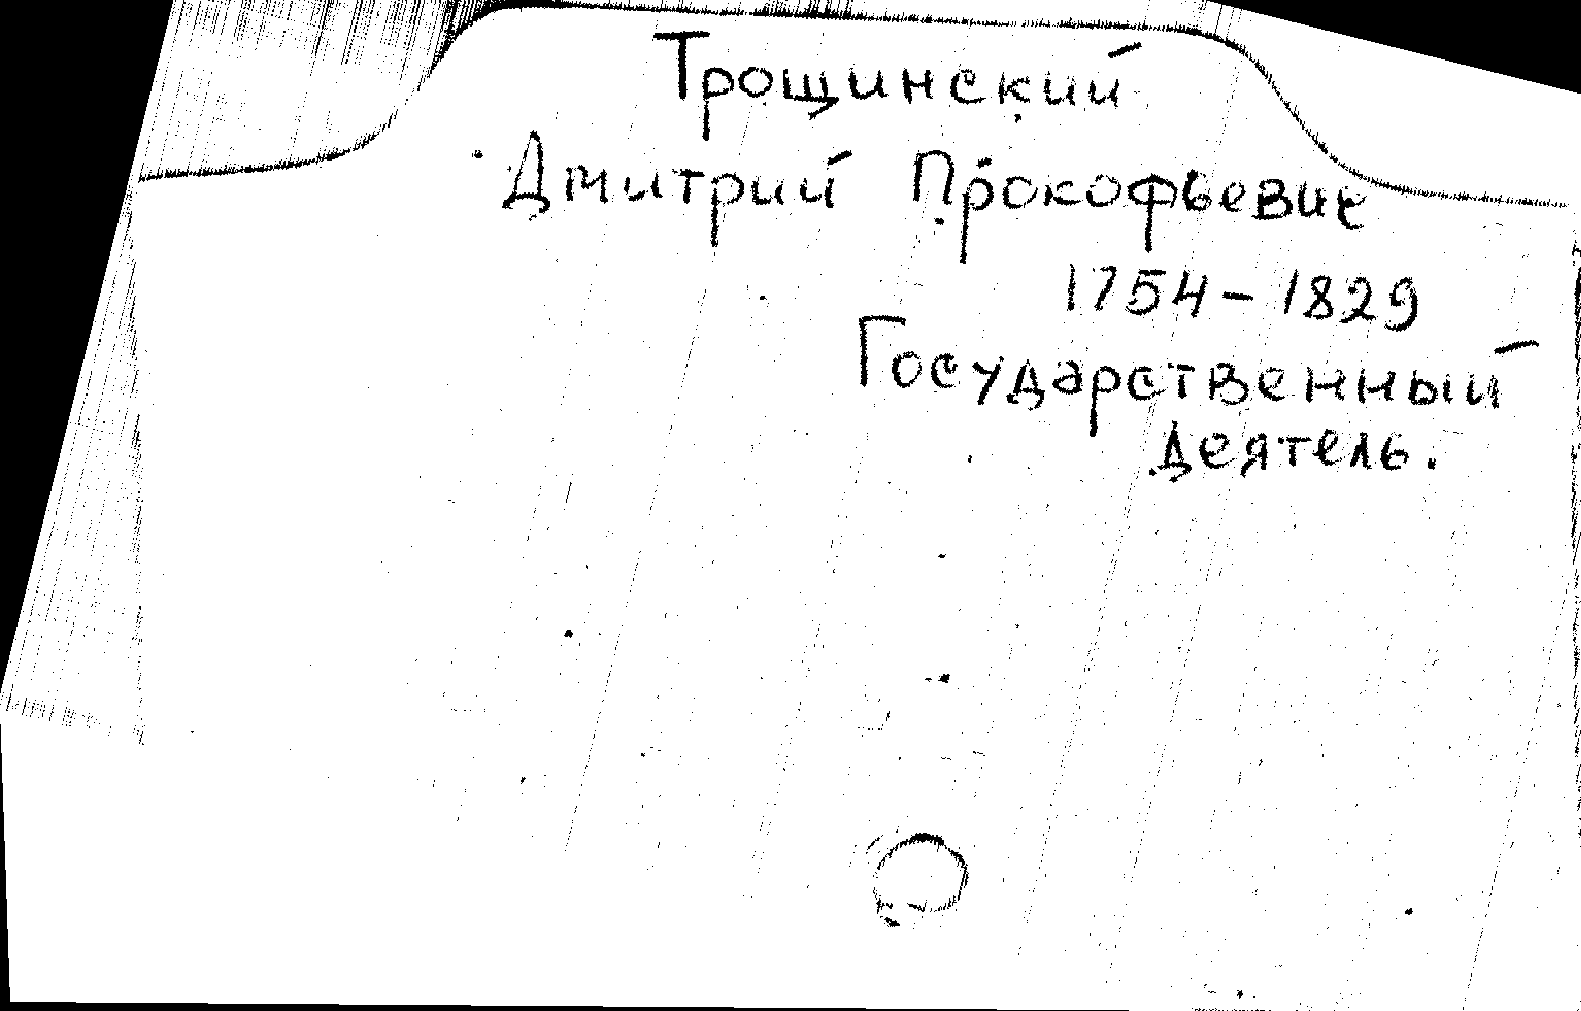 Трощинский
Дмитрий Прокофьевич
1754 - 1829
Государственный
деятель.